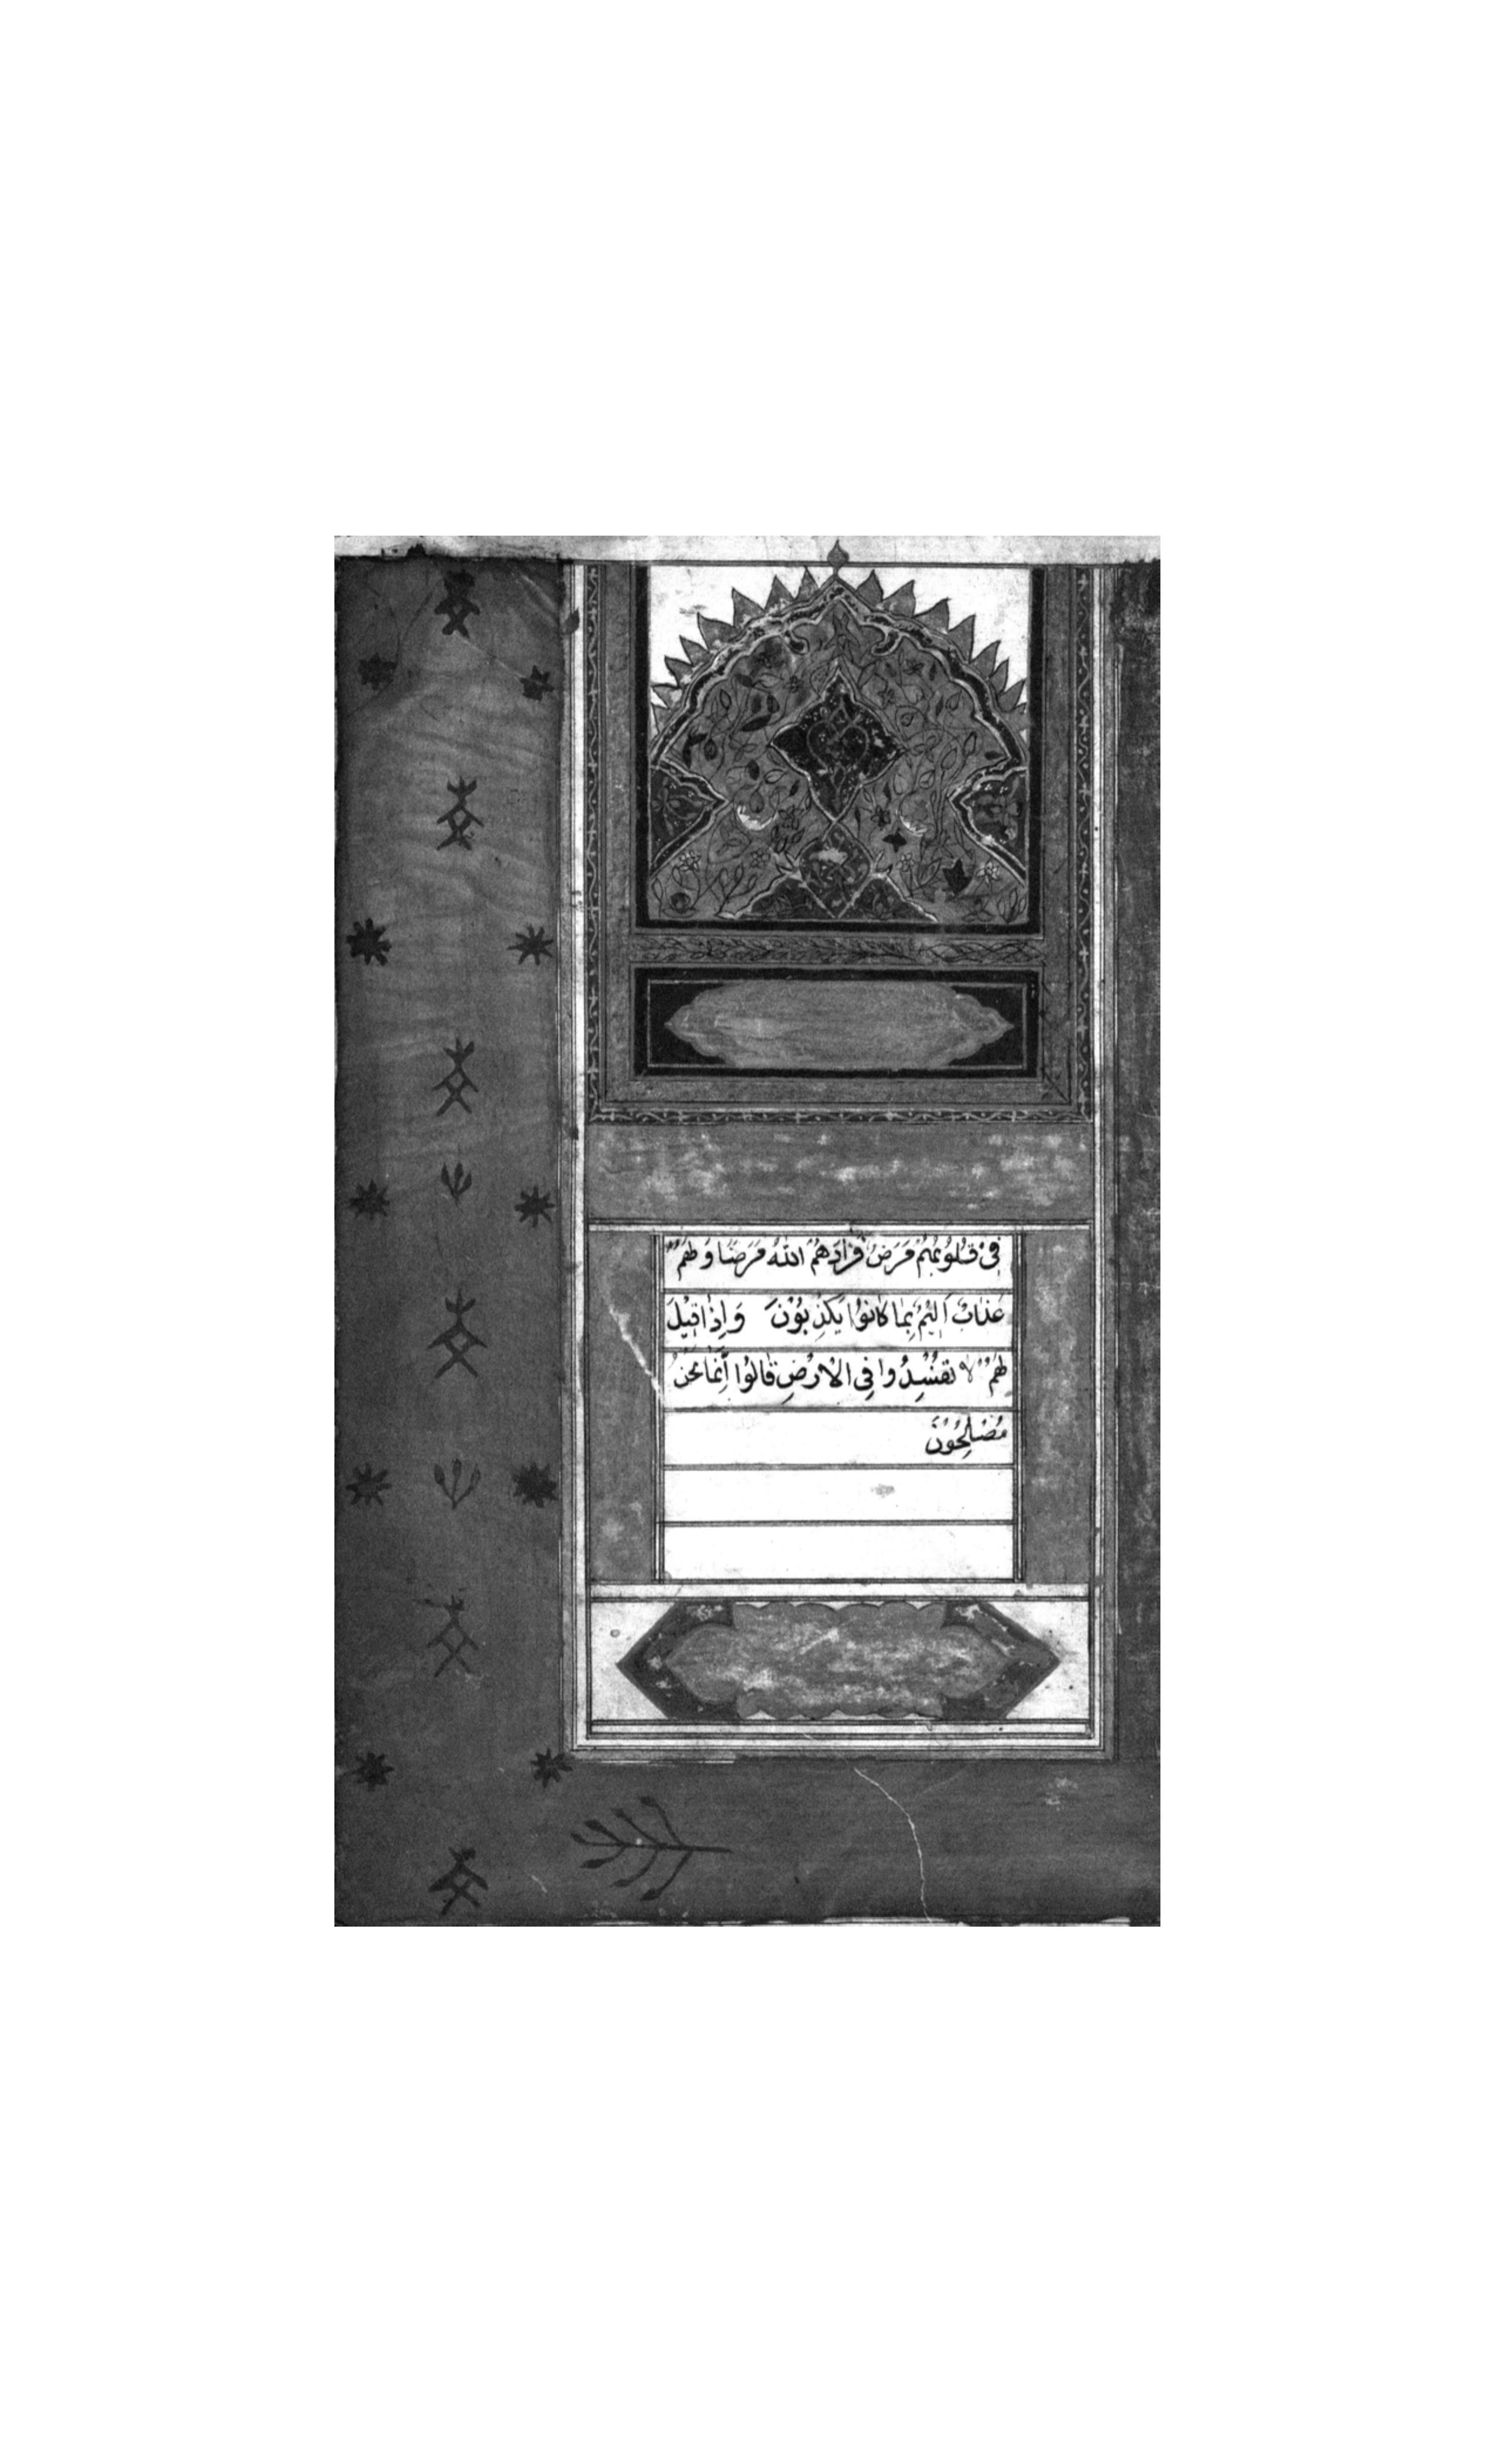 فِیْ قُلُوْبِهِمْ مَرَضٌ فَزَادَهُمُ اللّٰهُ مَرَضًا وَلَهُمْ
عَذَابٌ اَلِیْمٌ بِمَا كَانُوْا یَكْذِبُوْنَ وَاِذَا قِیْلَ
لَهُمْ لَا تُفْسِدُوا فِی الْاَرْضِ قَالُوْا اِنَّمَا نَحْنُ
مُصْلِحُوْنَ